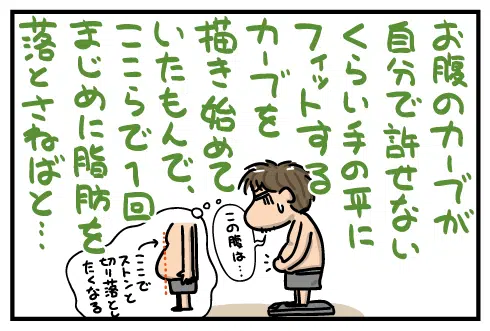 お腹のカーブが
自分で許せない
くらい手の平に
フィットする
カーブを
描き始めて
いたもんで、
ここらで1回
まじめに脂肪を
落とさねばと…
この腹は…
ここで
ストンと
切り落とし
たくなる